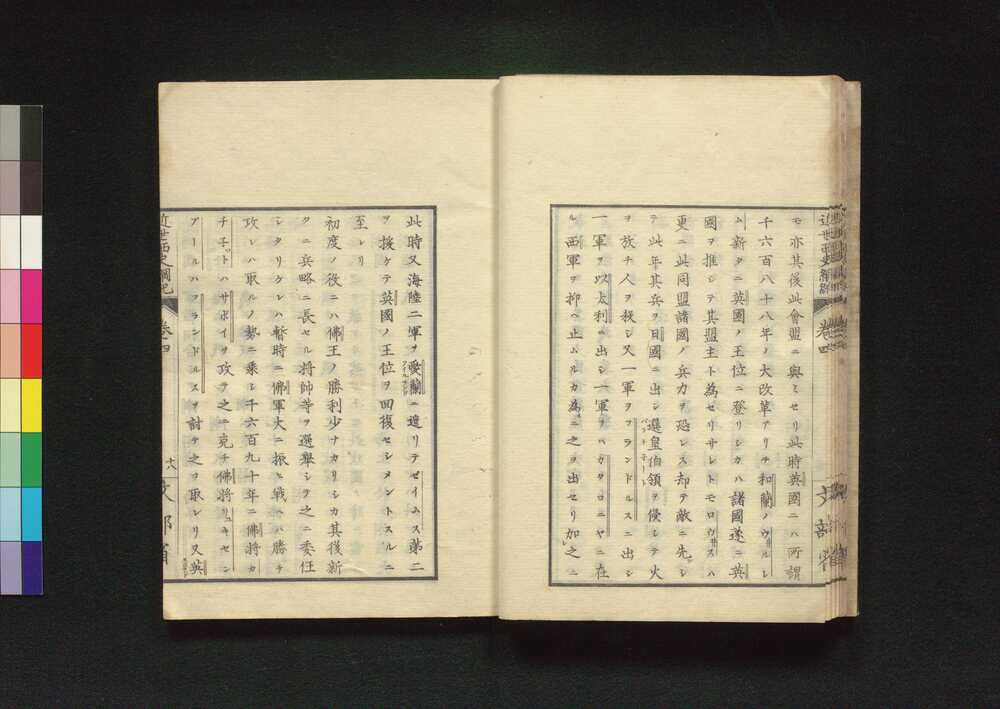 モ亦其後此會盟ニ與ミセリ此時英國ニハ所謂
千六百八十八年ノ大改革アリテ和蘭ノウルレ
ム新タニ英國ノ王位ニ登リシカハ諸國遂ニ英
國ヲ推シテ其盟主ト為セリサレトモロウヰスハ
更ニ此同盟諸國ノ兵力ヲ恐レス却テ敵ニ先シ
テ此年其兵ヲ日國ニ出シ選皇伯領ヲ侵シテ火
ヲ放チ人ヲ殺シ又一軍ヲフランドルスニ出シ
一軍ヲ以太利ニ出シ一軍ヲハカタロニヤニ在
ル西軍ヲ抑ヘ止ムルカ為ニ之ヲ出セリ加之ニ
近世西史綱紀
卷四
文部省
此時又海陸二軍ヲ愛蘭ニ遣リテゼイムス第二
アイルランド
ヲ援ケテ英國ノ王位ヲ回復セシメントスルニ
至レリ
初度ノ役ニハ佛王ノ勝利少ナカリシカ其後新
タニ兵略ニ長セル將帥等ヲ選舉シヲ之ニ委任
シタリケレハ暫時ニ佛軍大ニ振ヒ戰ヘハ勝チ
攻レハ取ルノ勢ニ乘シ千六百九十年ニ佛將カ
チ子ットハサボイヲ攻ヲ之ニ克チ佛將リュキセン
ブールハフランドルスヲ討テ之ヲ取レリ又英
近世西史綱紀
卷四
十八
文部省